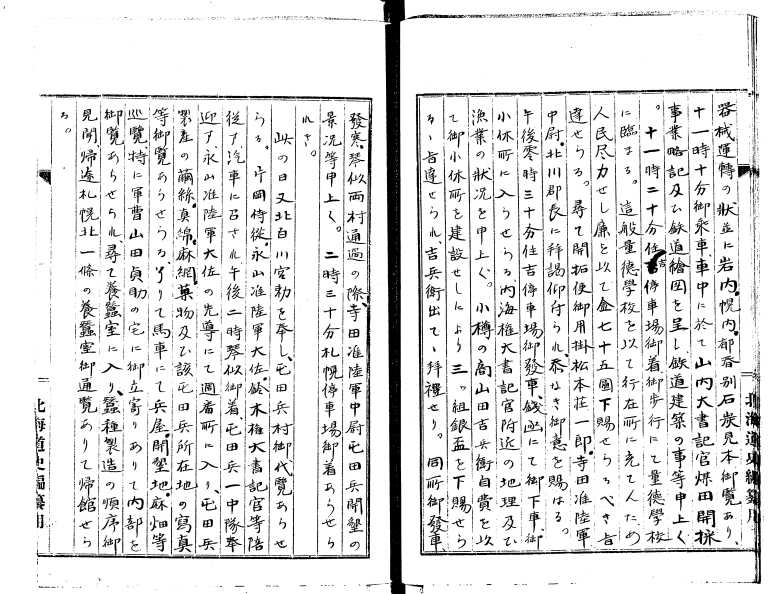 器械運轉の狀並に岩内、幌内、都春別石炭見本御覽あり、
十一時十分御乘車、車中に於て山内大書記官煤田開採
事業略記及ひ鉄道繪図を呈し鉄道建築の事等申上く
。十一時二十分住吉停車場御着御步行にて量德學校
に臨まる。這般量德學校を以て行在所に充て人ため
人民尽力せし廉を以て金七十五圓下賜せらるべき旨
達せらる。尋て開拓使御用掛松本荘一郎、寺田准陸軍
中尉、北川郡長に拜謁仰付られ、忝なき御意を賜はる。
午後零時三十分住吉停車場御發車、銭凾にて御下車、御
小休所に入らせらる内海権大書記官附近の地理及ひ
漁業の狀況を申上ぐ。小樽の商山田吉兵衛自費を以
て御小休所を建設せしにより三つ組銀盃を下賜せら
るゝ旨達せられ、吉兵衛出てゝ拜禮せり。同所御發車、
發寒、琴似両村通過の際、寺田准陸軍中尉屯田兵開墾の
景況等申上く。二時三十分札幌停車場御着あらせら
れき。
此の日又北白川宮勅を奉し、屯田兵村御代覽あらせ
らる。片岡侍從、永山准陸軍大佐、鈴木権大書記官等陪
從す、汽車に召され午後二時琴似御着、屯田兵一中隊奉
迎す、永山准陸軍大佐の先導にて週番所に入り、屯田兵
製産の繭絲、真綿、麻網、菓物及ひ該屯田兵所在地の寫真
等御覽あらせらる了りて馬車にて兵屋、開墾地、麻畑等
巡覽、特に軍曹山田貞助の宅に御立寄りありて内部を
御覽あらせられ、尋て養蠶室に入り、蠶種製造の順序御
見聞、帰途札幌北一條の養蠶室御通覽ありて帰館せら
る。
北海道史編纂用
北海道史編纂用